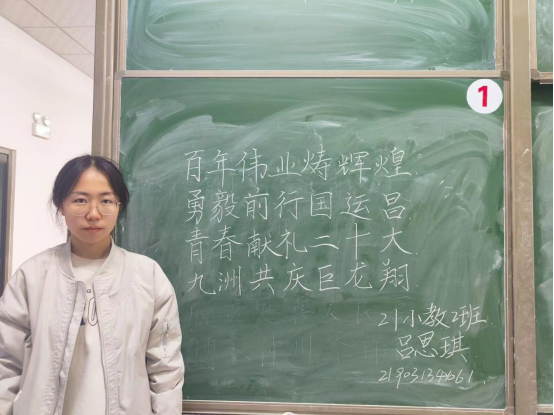 1
百年伟业炜辉煌
勇毅前行国运吕
青春献礼二十大
九洲共庆巨龙翔
21小教2班
吕思琪
21903134661